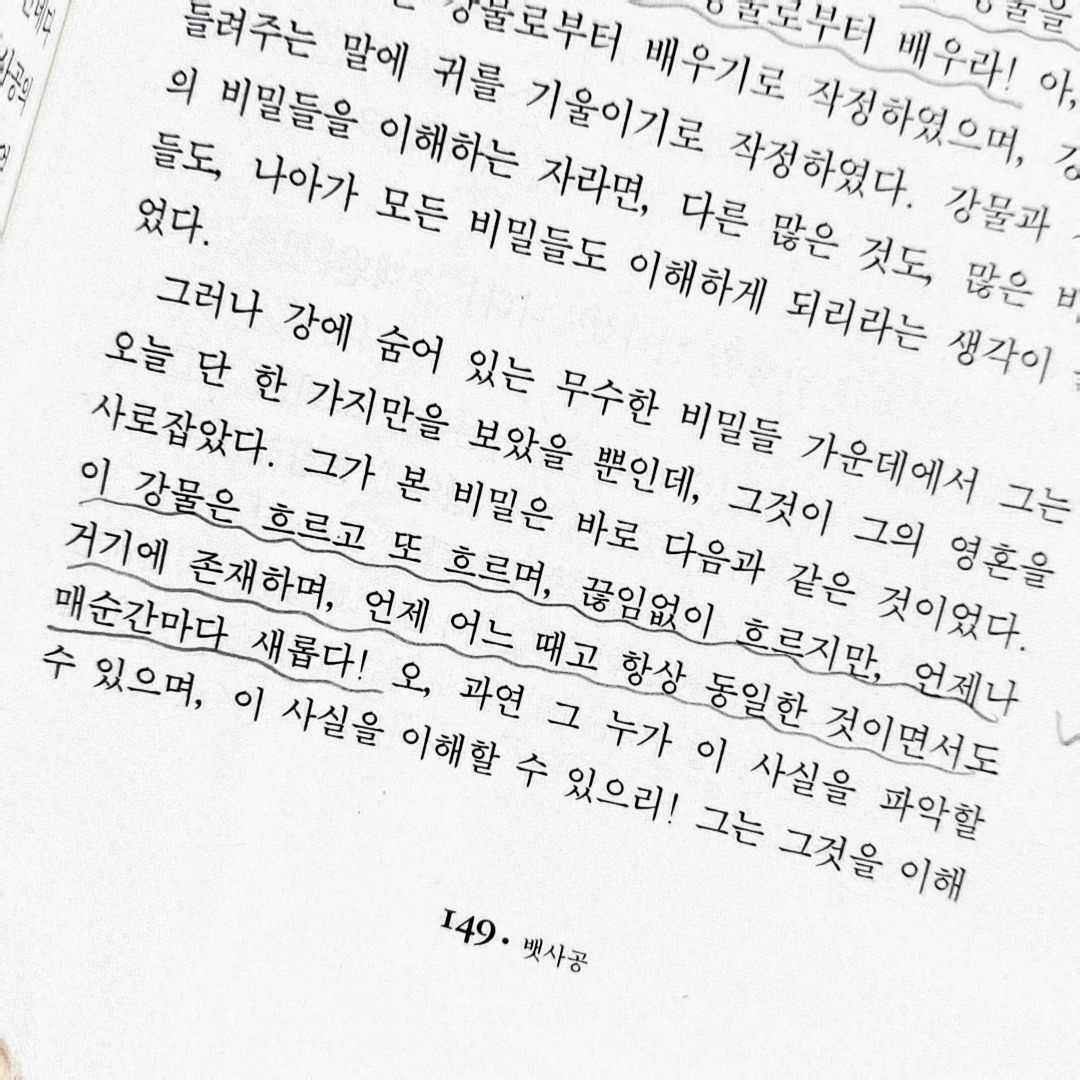 강물을
강물로부터 배우라! 아,
강물로부터 배우기로 작정하였으며,
들려주는 말에 귀를 기울이기로 작정하였다. 강물과
의 비밀들을 이해하는 자라면, 다른 많은 것도, 많은
들도, 나아가 모든 비밀들도 이해하게 되리라는 생각이
었다.
그러나 강에 숨어 있는 무수한 비밀들 가운데에서 그는
오늘 단 한 가지만을 보았을 뿐인데, 그것이 그의 영혼을
사로잡았다. 그가 본 비밀은 바로 다음과 같은 것이었다.
이 강물은 흐르고 또 흐르며, 끊임없이 흐르지만, 언제나
거기에 존재하며, 언제 어느 때고 항상 동일한 것이면서도
매순간마다 새롭다! 오, 과연 그 누가 이 사실을 파악할
수 있으며, 이 사실을 이해할 수 있으리! 그는 그것을 이해
149 · 뱃사공